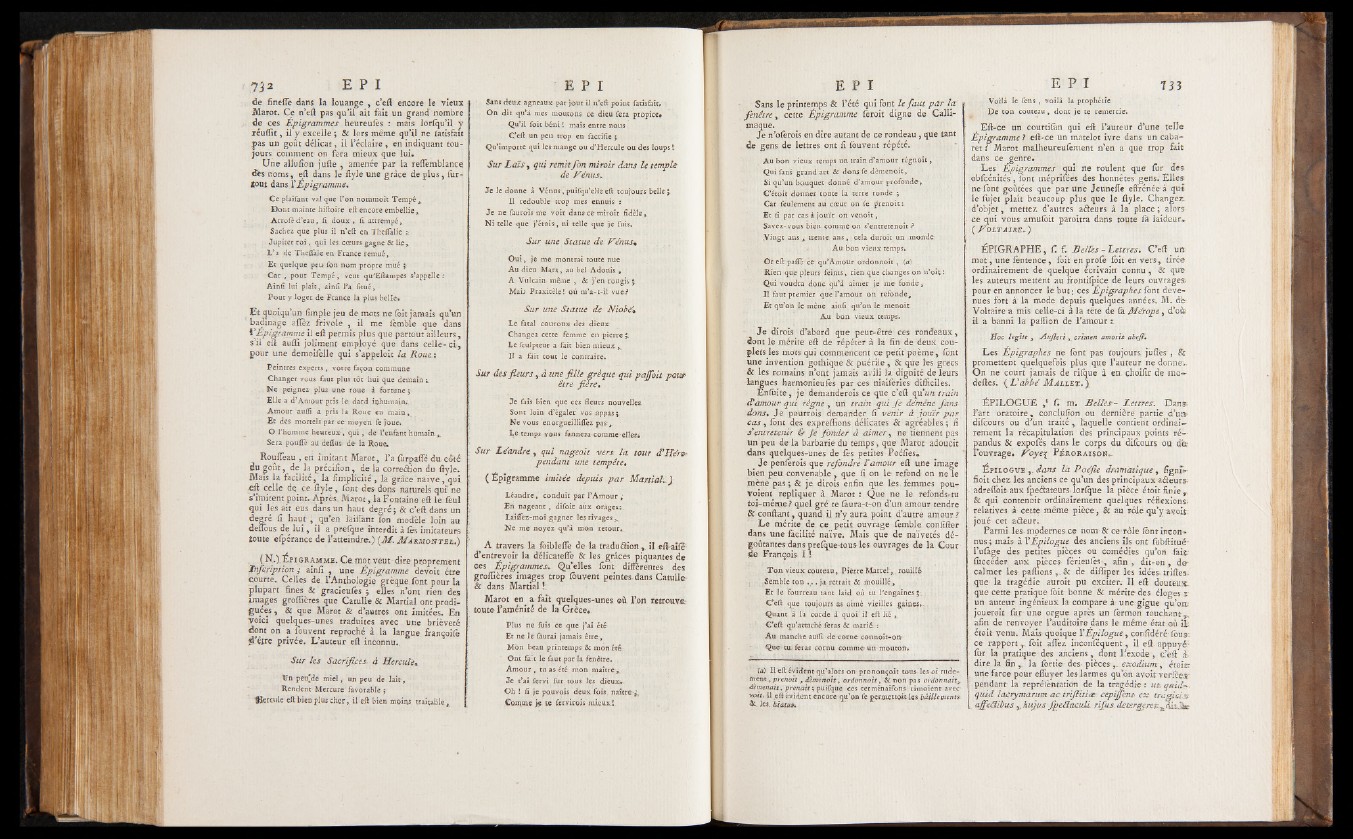 732 E P I
de fineſſe dans la louange , c'eſt encore le vieux
Marot. Ce n'eſt pas qu'il ait fait un grand nombre
de ces Epigrammes heureuſes : mais lorſqu'il y
réuſſit , il y excelle ; & lors même qu'il ne ſatisfait
pas un goût délicat , il l'éclaire , en indiquant tou-
jours comment on fera mieux que lui.
Une alluſion juſte , amenée par la reſſemblance
des noms, eſt dans le ſtyle une grâce de plus, ſur-
tout dans l'Épigramme.
Ce plaiſant val que l'on nommoit Tempé ,
Dont mainte hiſtoire eſt encore embellie,
Arroſé d'eau, ſi doux , ſi attrempé,
Sachez que plus il n'eſt en Theſſalie :
Jupiter roi , qui les cœurs gagne & lie,
L'a de Theſſale en France remué,
Et quelque peu ſon nom propre mué ;
Car , pour Tempé, veut qu'Eſtampes s'appelle :
Ainſi lui plait, ainſi l'a ſitué,
Pour y loger de France la plus belle.
Et quoiqu'un ſimple jeu de mots ne ſoit jamais qu'un
badinage aſſez frivole , il me ſemble que dans
l'Épigramme il eſt permis plus que partout ailleurs,
s'il eſt auſſi joliment employé que dans celle-ci,
pour une demoiſelle qui s'appeloit la Roue :
Peintres experts , votre façon commune
Changer vous faut plus tôt hui que demain ;
Ne peignez plus une roue à fortune ;
Elle a d'Amour pris le dard inhumain.
Amour auſſi a pris la Roue en main,
Et des mortels par ce moyen ſe joue.
O l'homme heureux , qui , de l'enfant humain ,
Sera pouſſé au deſſus de la Roue.
Rouſſeau , en imitant Marot, l'a ſurpaſſé du côté
du goût, de la préciſion, de la correction du ſtyle.
Mais la facilité, la ſimplicité , la grâce naïve , qui
eſt celle de ce ſtyle , ſont des dons naturels qui ne
s'imitent point. Après Marot, la Fontaine eſt le ſeul
qui les ait eus dans un haut degré ; & c'eſt dans un
degré ſi haut , qu'en laiſſant ſon modèle loin au
deſſous de lui , il a preſque interdit à ſes imitateurs
toute eſpérance de l'atteindre.) (M. MARMONTEL.)
(N.) ÉPIGRAMME. Ce mot veut dire proprement
Inſcription ; ainſi , une Épigramme devoit être
courte. Celles de l'Anthologie grèque ſont pour la
plupart fines & gracieuſes ; elles n'ont rien des
images groſſières que Catulle & Martial ont prodi-
guées, & que Marot & d'autres ont imitées. En
voici quelques-unes traduites avec une brièveté
dont on a ſouvent reproché à la langue françoiſe
d'être privée. L'auteur eſt inconnu.
Sur les Sacrifices à Hercule.
Un peu de miel , un peu de lait,
Rendent Mercure favorable ;
Hercule eſt bien plus cher, il eſt bien moins traitable,
E P I
Sans deux agneaux par jour il n'eſt point ſatisfait.
On dit qu'à mes moutons ce dieu ſera propice.
Qu'il ſoit béni ! mais entre nous
C'eſt un peu trop en ſacrifice ;
Qu'importe qui les mange ou d'Hercule ou des loups !
Sur Laïs, qui remit ſon miroir dans le temple
de Vénus.
Je le donne à Vénus, puiſqu'elle eſt toujours belle ;
Il redouble trop mes ennuis :
Je ne ſaurois me voir dans ce miroir fidèle,
Ni telle que j'étois, ni telle que je ſuis.
Sur une Statue de Vénus.
Oui , je me montrai toute nue
Au dieu Mars, au bel Adonis ,
A Vulcain même , & j'en rougis ;
Mais Praxitèle ! où m'a-t-il vue?
Sur une Statue de Niobé.
Le fatal courroux des dieux
Changea cette femme en pierre ;
Le ſculpteur a fait bien mieux ,
Il a fait tout le contraire.
Sur des fleurs, à une fille grèque qui paſſoit pour
être fière.
Je ſais bien que ces fleurs nouvelles
Sont loin d'égaler vos appas ;
Ne vous enorgueilliſſez pas ,
Le temps vous fannera comme elles.
Sur Léandre , qui nageoit vers la tour d'Héro
pendant une tempête.
( Épigramme imitée depuis par Martial. )
Léandre, conduit par l'Amour ,
En nageant , diſoit aux orages :
Laiſſez-moi gagner les rivages ,
Ne me noyez qu'à mon retour.
A travers la foibleſſe de la traduction , il eſt aiſé
d'entrevoir la délicateſſe & les grâces piquantes de
ces Épigrammes. Qu'elles ſont différentes des
groſſières images trop ſouvent peintes dans Catulle
& dans Martial !
Marot en a fait quelques-unes où l'on retrouve
toute l'aménité de la Grèce.
Plus ne ſuis ce que j'ai été
Et ne le ſaurai jamais être ,
Mon beau printemps & mon été
Ont fait le ſaut par la fenêtre.
Amour , tu as été mon maître,
Je t'ai ſervi ſur tous les dieux.
Oh ! ſi je pouvois deux fois naître ,
Comme je te ſervirois mieux !
E P I
Sans le printemps & l'été qui font le ſaut par la
fenêtre, cette Épigramme ſeroit digne de Calli-
maque.
Je n'oſerois en dire autant de ce rondeau , que tant
de gens de lettres ont ſi ſouvent répété.
Au bon vieux temps un train d'amour régnoit ,
Qui ſans grand art & dons ſe démenoit ,
Si qu'un bouquet donné d'amour profonde,
C'étoit donner toute la terre ronde ;
Car ſeulement au cœur on ſe prenoit :
Et ſi par cas à jouïr on venoit ,
Savez-vous bien comme on s'entretenoit ?
Vingt ans , trente ans, cela duroit un monde
Au bon vieux temps.
Or eſt paſſé ce qu'Amour ordonnoit , (a)
Rien que pleurs feints, rien que changes on n'oit :
Qui voudra donc qu'à aimer je me fonde,
Il faut premier que l'amour on refonde,
Et qu'on le mène ainſi qu'on le menoit
Au bon vieux temps.
Je dirois d'abord que peut-être ces rondeaux ,
dont le mérite eſt de répéter à la fin de deux cou-
plets les mots qui commencent ce petit poème, ſont
une invention gothique & puérile , & que les grecs
& les romains n'ont jamais avili la dignité de leurs
langues harmonieuſes par ces niaiſeries difficiles.
Enſuite , je demanderois ce que c'eſt qu'un train
d'amour qui règne , un train qui ſe démène ſans
dons. Je pourrois demander ſi venir à jouïr par
cas, ſont des expreſſions délicates & agréables ; ſi
s'entretenir & ſe fonder à aimer, ne tiennent pas
un peu de la barbarie du temps, que Marot adoucit
dans quelques-unes de ſes petites Poéſies.
Je penſerois que refondre l'amour eſt une image
bien peu convenable , que ſi on le refond on ne le
mène pas ; & je dirois enfin que les femmes pou-
voient repliquer à Marot : Que ne le refonds-tu
toi-même ? quel gré te ſaura-t-on d'un amour tendre
& conſtant , quand il n'y aura point d'autre amour ?
Le mérite de ce petit ouvrage ſemble conſiſter
dans une facilité naïve. Mais que de naïvetés dé-
goûtantes dans preſque tous les ouvrages de la Cour
de François I !
Ton vieux couteau , Pierre Martel , rouillé
Semble ton ... ja retrait & mouillé ,
Et le fourreau tant laid où tu l'engaînes ;
C'eſt que toujours as aimé vieilles gaines.
Quant à la corde à quoi il eſt lié ,
C'eſt qu'attaché ſeras & marié :
Au manche auſſi de corne connoît-on
Que tu ſeras cornu comme un mouton.
(a) Il eſt évident qu'alors on prononçoit tous les oi rude-
ment, prenoit , démenoit , ordonnoit , & non pas ordonnait,
démenait, prenait ; puiſque ces terminaiſons rimoient avec
voit. Il eſt évident encore qu'on ſe permettoit les bâillements
& les hiatus.
E P I 733
Voilà le ſens , voilà la prophétie
De ton couteau , dont je te remercie.
Eſt-ce un courtiſan qui eſt l'auteur d'une telle
Épigramme ? eſt-ce un matelot ivre dans un caba-
ret ? Marot malheureuſement n'en a que trop fait
dans ce genre.
Les Épigrammes qui ne roulent que ſur des
obſcénités, ſont mépriſées des honnêtes gens. Elles
ne ſont goûtées que par une Jeuneſſe effrénée à qui
le ſujet plait beaucoup plus que le ſtyle. Changez
d'objet, mettez d'autres acteurs à la place ; alors
ce qui vous amuſoit paroîtra dans toute ſa laideur.
( VOLTAIRE. )
ÉPIGRAPHE , ſ. f. Belles-Lettres. C'eſt un
mot , une ſentence , ſoit en proſe ſoit en vers, tirée
ordinairement de quelque écrivain connu , & que
les auteurs mettent au frontiſpice de leurs ouvrages
pour en annoncer le but ; ces Épigraphes ſont deve-
nues fort à la mode depuis quelques années. M. de
Voltaire a mis celle-ci à la tête de ſa Mérope , d'où
il a banni la paſſion de l'amour :
Hoc legite , Auſteri , crimen amoris abeſt.
Les Épigraphes ne ſont pas toujours juſtes , &
promettent quelquefois plus que l'auteur ne donne.
On ne court jamais de riſque à en choiſir de mo-
deſtes. ( L'abbé MALLET. )
ÉPILOGUE , ſ. m. Belles-Lettres. Dans
l'art oratoire , concluſion ou dernière partie d'un
diſcours ou d'un traité , laquelle contient ordinai-
rement la récapitulation des principaux points ré-
pandus & expoſés dans le corps du diſcours ou de
l'ouvrage. Voyez PÉRORAISON.
ÉPILOGUE , dans la Poéſie dramatique , ſigni-
fioit chez les anciens ce qu'un des principaux acteurs
adreſſoit aux ſpectateurs lorſque la pièce étoit finie ,
& qui contenoit ordinairement quelques réflexions
relatives à cette même pièce , & au rôle qu'y avoit
joué cet acteur.
Parmi les modernes ce nom & ce rôle ſont incon-
nus ; mais à l'Épilogue des anciens ils ont ſubſtitué
l'uſage des petites pièces ou comédies qu'on fait
ſuccéder aux pièces ſérieuſes , afin , dit-on , de
calmer les paſſions , & de diſſiper les idées triſtes
que la tragédie auroit pu exciter. Il eſt douteux
que cette pratique ſoit bonne & mérite des éloges :
un auteur ingénieux la compare à une gigue qu'on
joueroit ſur une orgue après un ſermon touchant ,
afin de renvoyer l'auditoire dans le même état où il
étoit venu. Mais quoique l'Épilogue , conſidéré ſous
ce rapport , ſoit aſſez inconſéquent , il eſt appuyé
ſur la pratique des anciens , dont l'exode , c'eſt à
dire la fin , la ſortie des pièces , exodium , étoit
une farce pour eſſuyer les larmes qu'on avoit verſées
pendant la repréſentation de la tragédie : ut quid-
quid lacrymarum ac triſtitiæ cepiſſent ex tragicis
affectibus , hujus ſpectaculi riſus detergeret ,